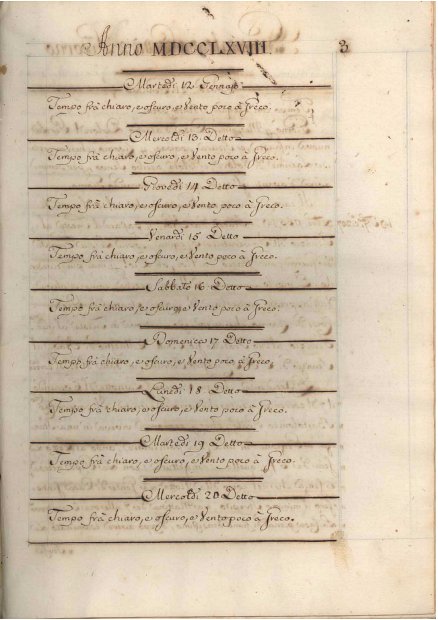 Anno MDCCLXVIII. 3
Martedi 12 Gennajo
Tempo frà chiaro, e oscuro, e Vento poco à Greco.
Mercoldi 13 Detto
Tempo frà chiaro, e oscuro, e Vento poco à Greco.
Giovedi 14 Detto
Tempo frà chiaro, e oscuro, e Vento poco à Greco.
Venardi 15 Detto
Tempo frà chiaro, e oscuro, e Vento poco à Greco.
Sabbato 16 Detto
Tempo frà chiaro, e oscuro, e Vento poco à Greco.
Domenica 17 Detto
Tempo frà chiaro, e oscuro, e Vento poco à Greco.
Lunedi 18 Detto
Tempo frà chiaro, e oscuro, e Vento poco à Greco.
Martedi 19 Detto
Tempo frà chiaro, e oscuro, e Vento poco à Greco.
Mercoldi 20 Detto
Tempo frà chiaro, e oscuro, e Vento poco à Greco.